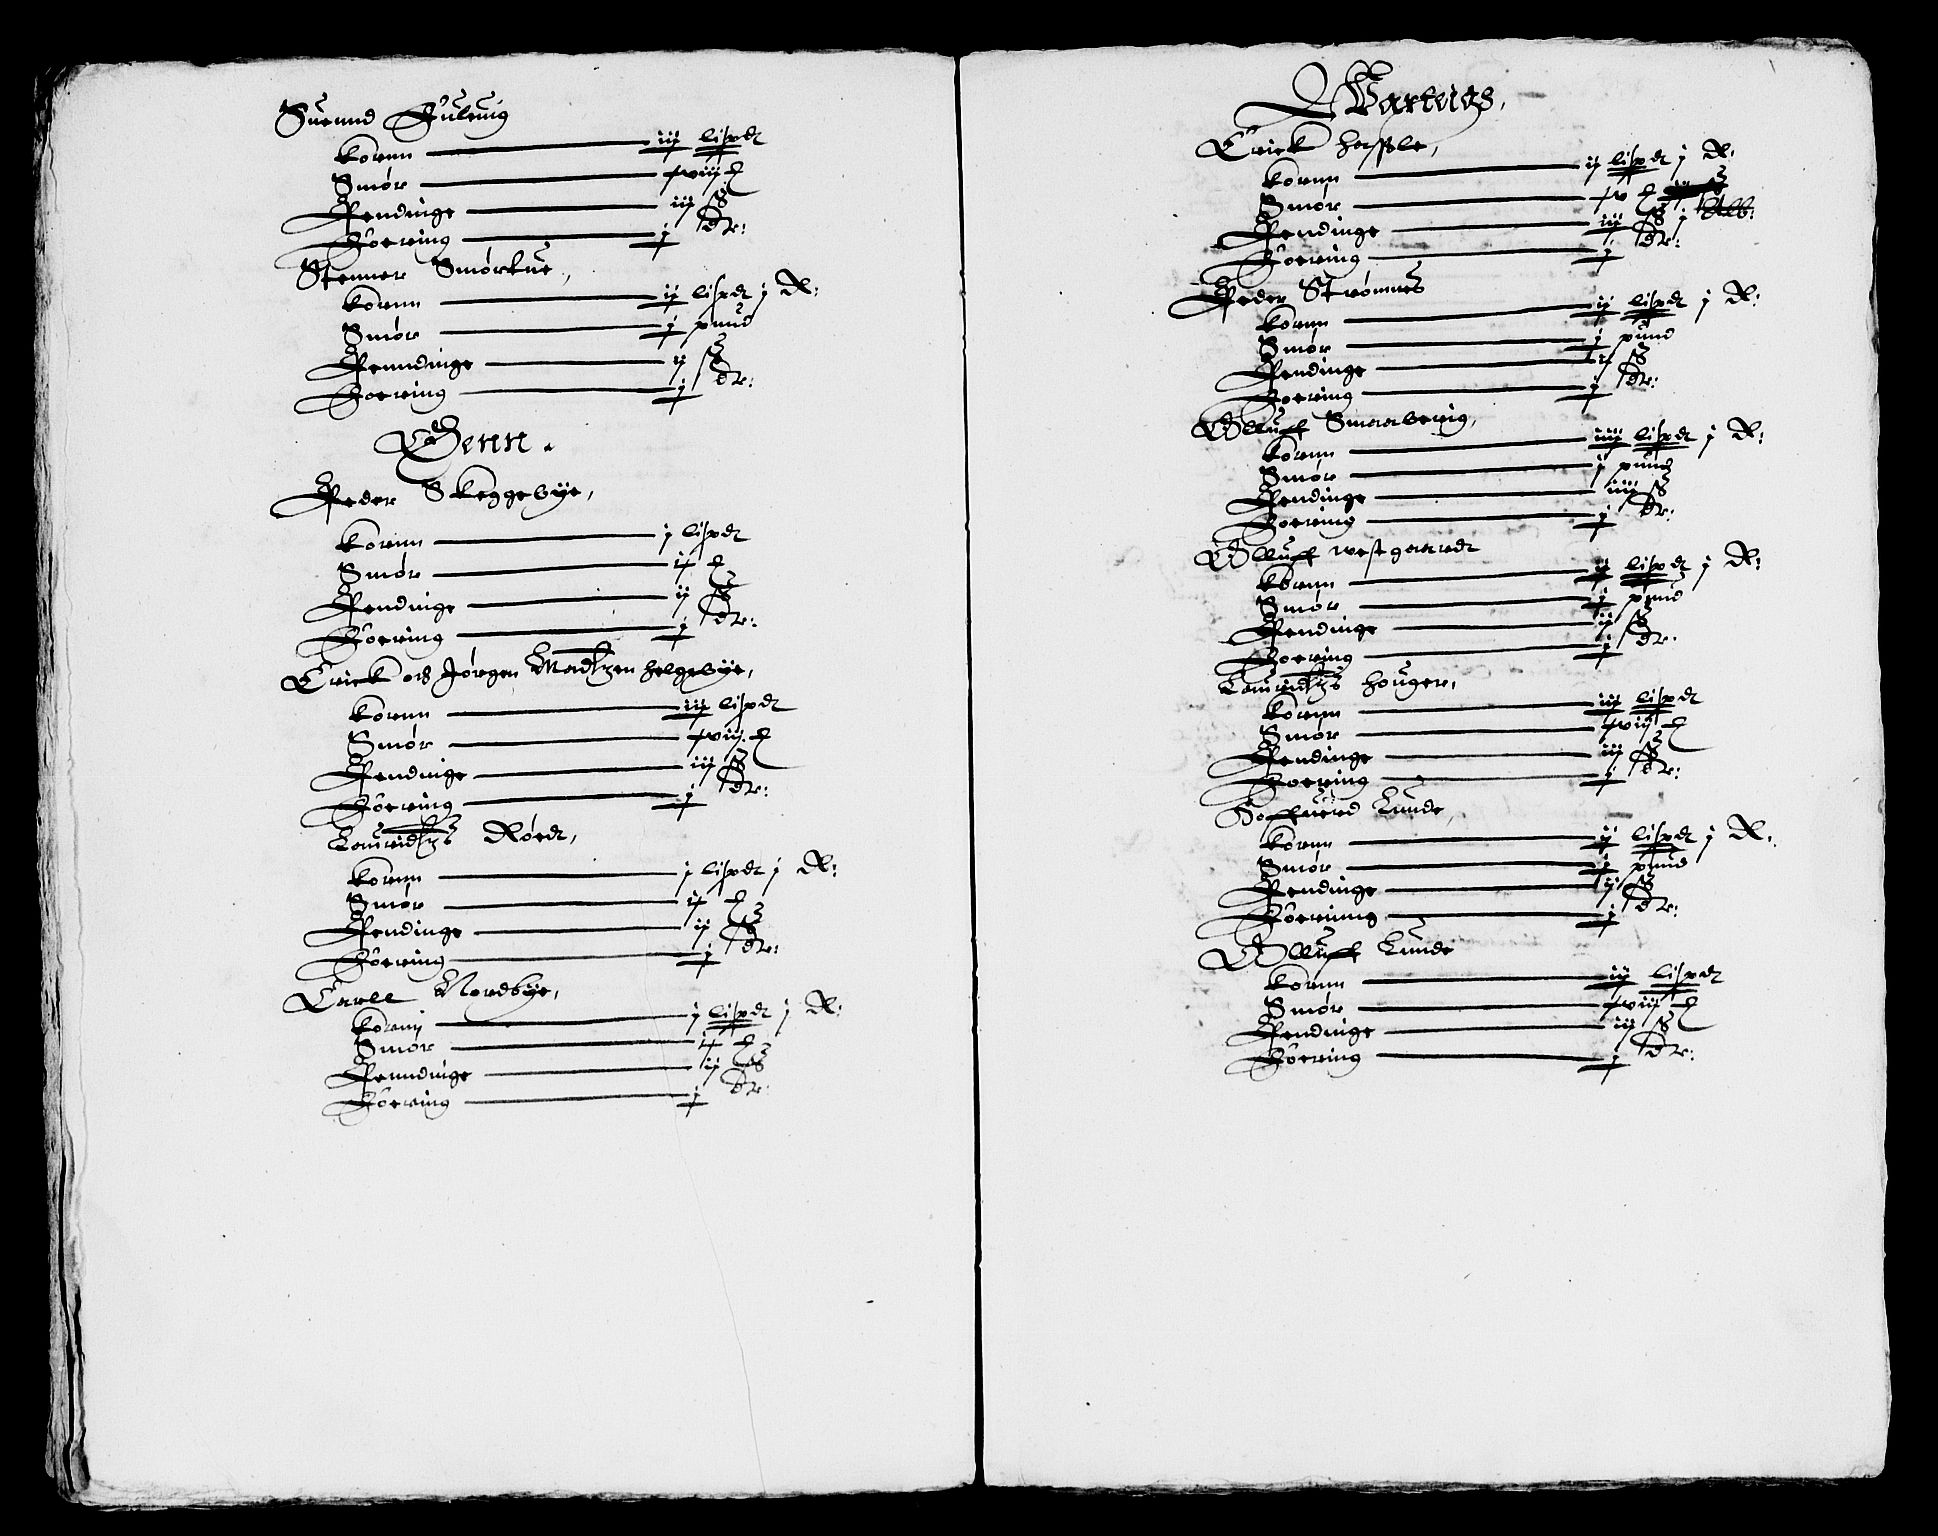 Suennd Fulruig
Kornn iij lispdt
Smør xviij ℔
Pendinge iij ß
Foering j dr:
Stenner Smørkue,
Kornn ij lispdt j R:
Smør j pund
Penndinge ij ß
Foering j dr:
Genn.
Peder Skeggebÿe,
Kornn j lispdt
Smør ix ℔
Pendinge ij ß
Foering j dr:
Erick och Jørgen Madtzen helgebÿe,
Kornn iij lispdt
Smør xviij ℔
Pendinge iij ß
Foering j dr:
Lauridtzs Røedt,
Kornn j lispdt j R:
Smør ix ℔
Pendinge ij ß
Foering j dr:
Carll Nordbÿe,
Kornn j lispdt j R:
Smør ix ℔
Penndinge ij ß
Foering j dr:
Warteigs,
Erick haßle,
Kornn ij lispdt j R:
Smør xv ℔
Pendinge iij ß j alb:
Foering j dr:
Peder Strømnes
Kornn ij lispdt j R:
Smør j pund
Pendinge ij ß
Foering j dr:
Olluff Smaaberig,
Kornn iiij lispdt j R:
Smør j pund
Pendinge iiij ß
Foering j dr:
Olluff westgaardt
Kornn ij lispdt j R:
Smør j pund
Pendinge ij ß
Foering j dr:
Lauridtzs houger,
Kornn iij lispdt
Smør xviij ℔
Pendinge iij ß
Foering j dr:
Hoffuerd Lunde,
Kornn ij lispdt j R:
Smør j pund
Pendinge ij ß
Foerinng j dr:
Olluff Lunde
Kornn iij lispdt
Smør xviij ℔
Pendinge iij ß
Foering j dr: